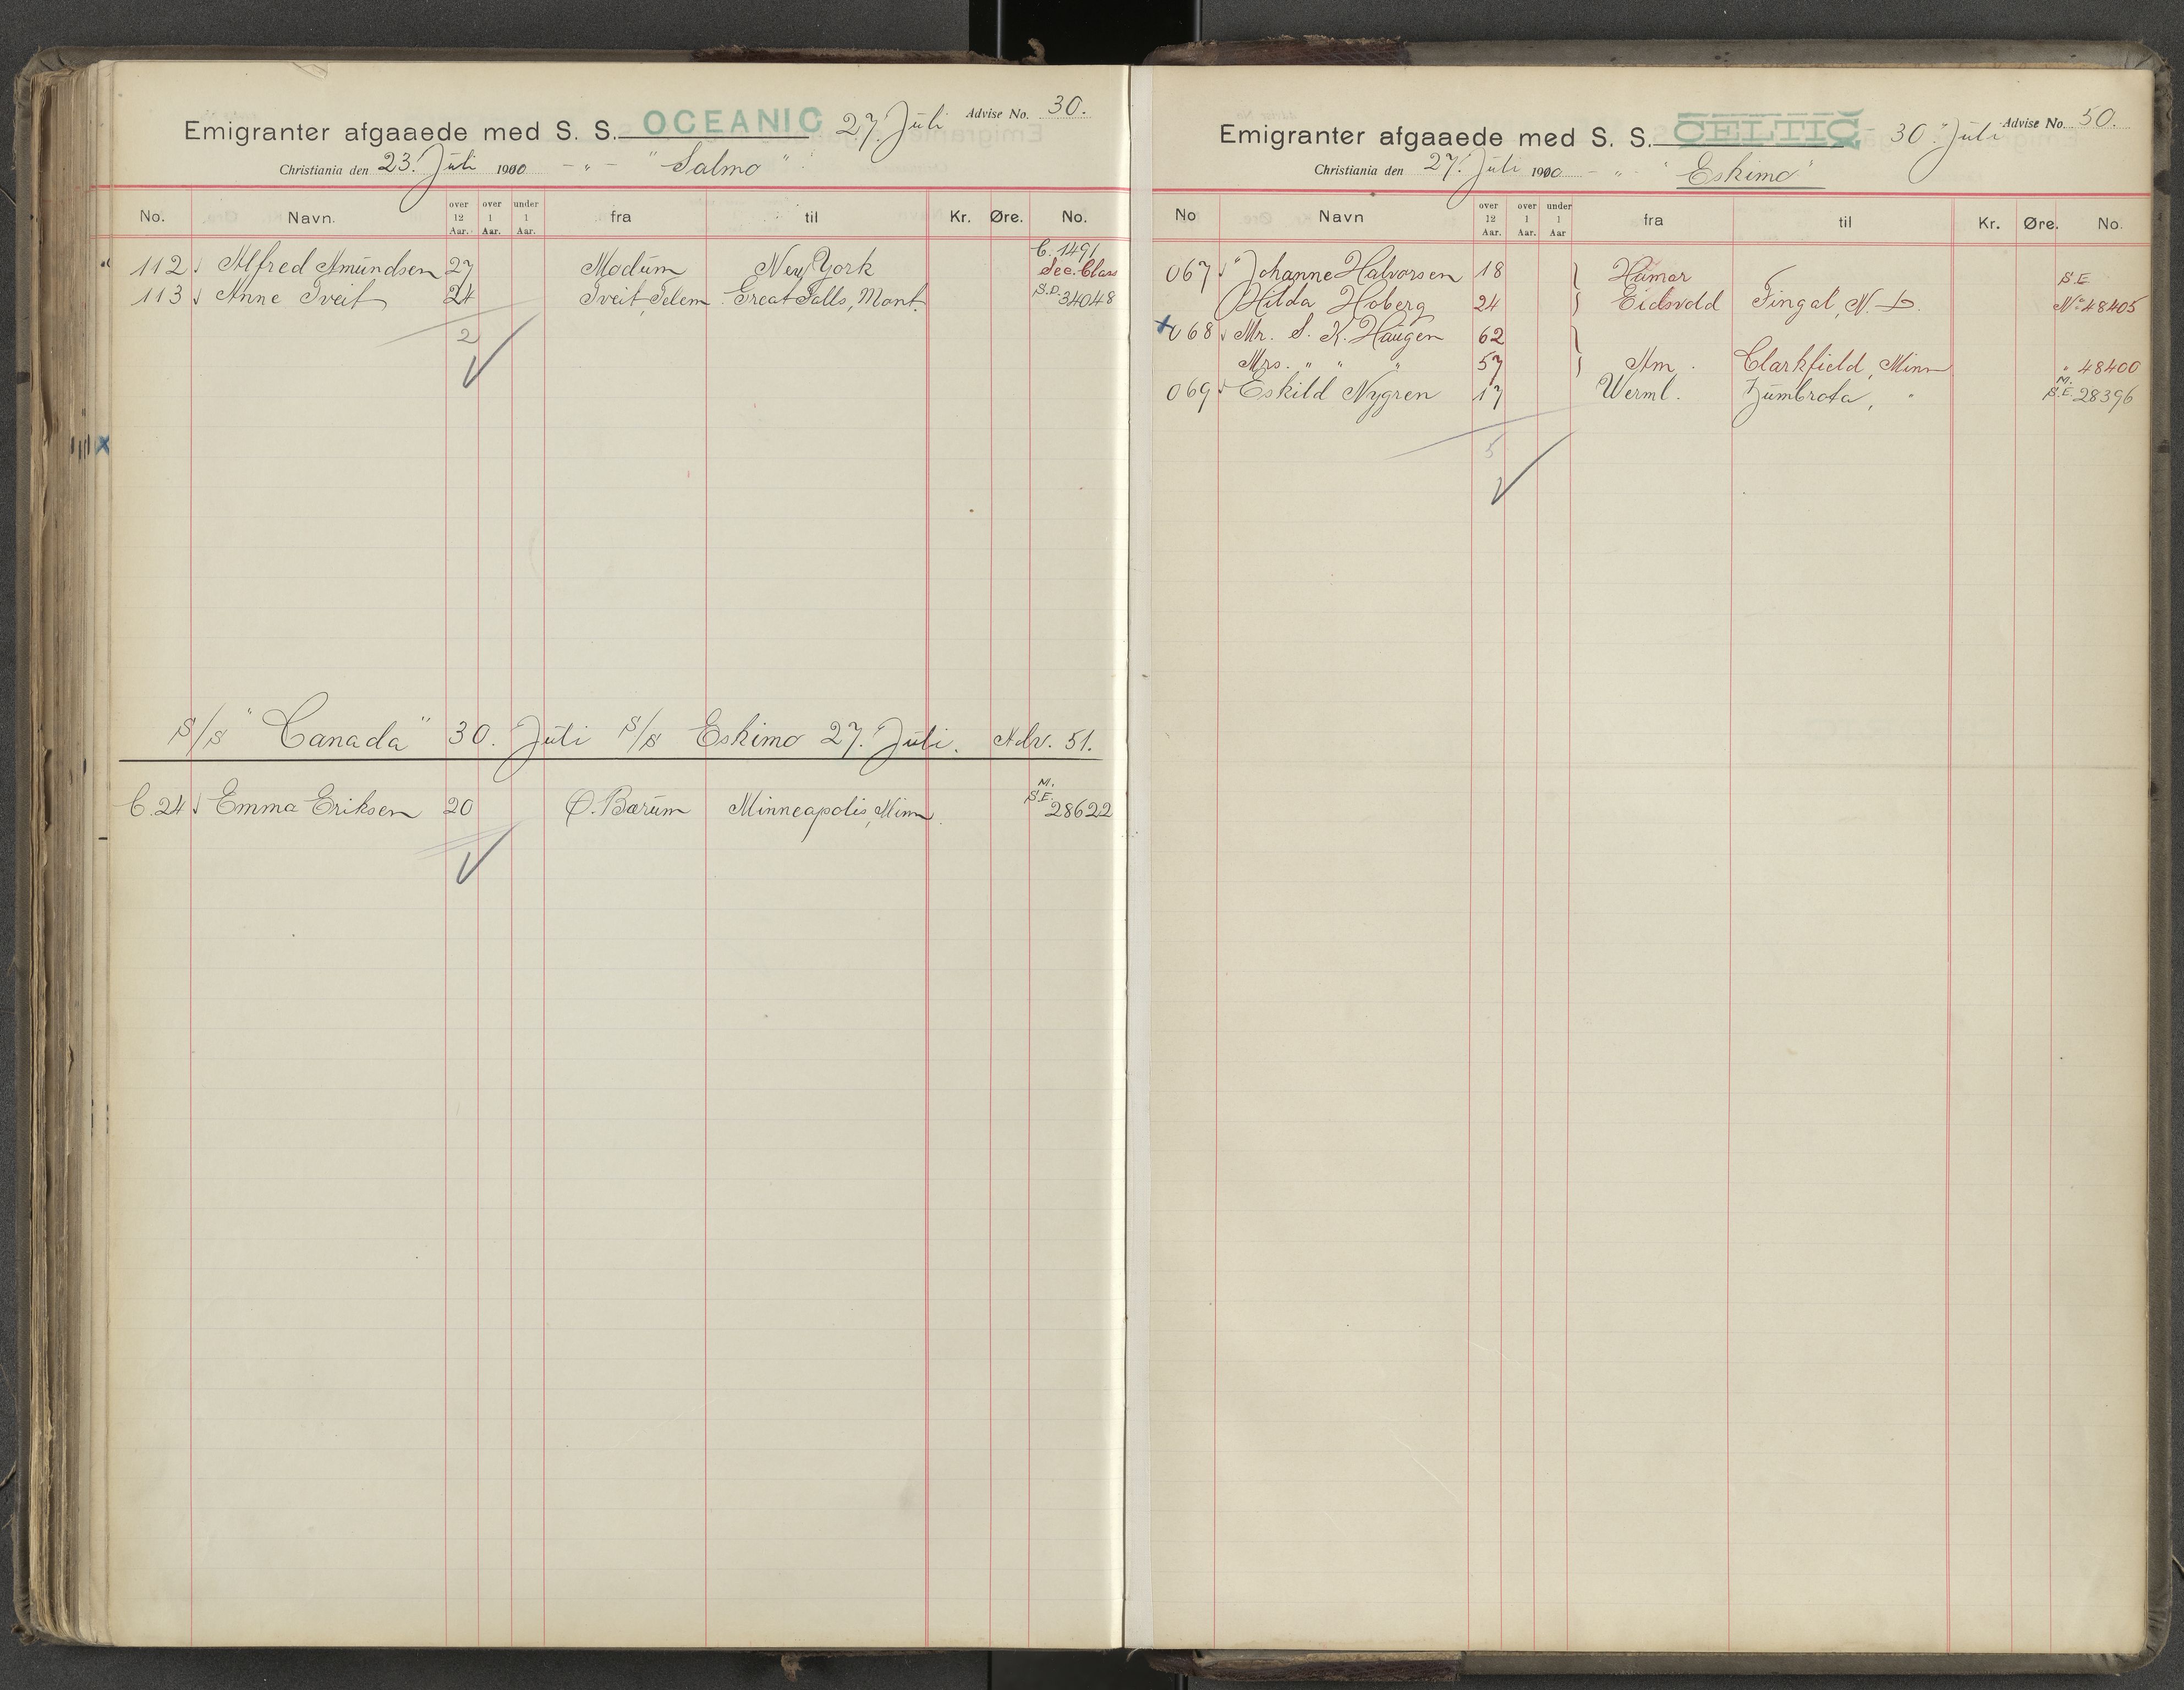 Emigranter afgaaede med S. S. OCEANIC 27. Juli Advise No. 30.
Christiania den 23. Juli 1900 - " - "Salmo"
No. Navn. over 12 Aar. over 1 Aar. under 1 Aar. fra til Kr. Øre. No.
112 Alfred Amundsen 27 Modum New York C. 1491 Sec. Class
113 Anne Tveit 24 Tveit, Telem. Great Falls, Mont. S.D. 34048
2
S/S "Canada" 30. Juli S/S Eskimo 27. Juli. Adv. 51.
C. 24 Emma Eriksen 20 Ø. Bærum Minneapolis, Minn. M. S.E. 28622
Emigranter afgaaede med S. S. CELTIC 30. Juli Advise No. 50.
Christiania den 27. Juli 1900 - " - "Eskimo"
No Navn over 12 Aar. over 1 Aar. under 1 Aar fra til Kr. Øre. No.
067 Johanne Halvorsen 18 } Hamar S.E
Hilda Hoberg 24 } Eidsvold Fingal, N.-D. No. 48405
068 Mr. S. K. Haugen 62 }
Mrs. " " " 57 } Am. Clarkfield, Minn " 48400
069 Eskild Nygren 17 Werml. Zumbrota, " M. S.E. 28396
5